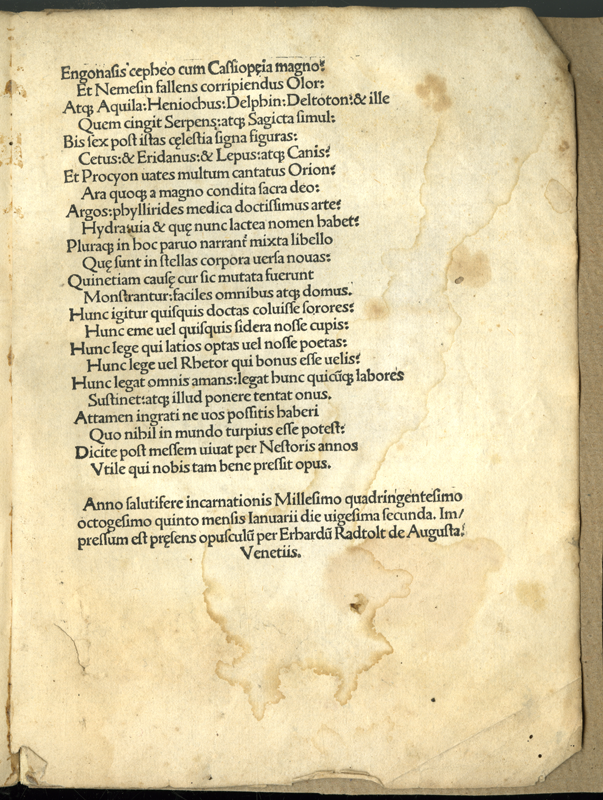 Engonasis cepheo cum Cassiopęia magno:
Et Nemesin fallens corripiendus Olor:
Atq; Aquila: Heniochus: Delphin: Deltoton: & ille
Quem cingit Serpens: atq; Sagicta simul:
Bis sex post istas cęlestia signa figuras:
Cetus: & Eridanus: & Lepus: atq; Canis:
Et Procyon uates multum cantatus Orion:
Ara quoq; a magno condita sacra deo:
Argos: phyllirides medica doctissimus arte:
Hydra; uia & quę nunc lactea nomen habet:
Pluraq; in hoc paruo narrant mixta libello
Quę sunt in stellas corpora uersa nouas:
Quinetiam causę cur sic mutata fuerunt
Monstrantur: faciles omnibus atq; domus.
Hunc igitur quisquis doctas coluisse sorores:
Hunc eme uel quisquis sidera nosse cupis:
Hunc lege qui latios optas uel nosse poetas:
Hunc lege uel Rhetor qui bonus esse uelis:
Hunc legat omnis amans: legat hunc quicũq; labores
Sustinet: atq; illud ponere tentat onus.
Attamen ingrati ne uos possitis haberi
Quo nihil in mundo turpius esse potest:
Dicite post messem uiuat per Nestoris annos
Vtile qui nobis tam bene pressit opus.
Anno salutifere incarnationis Millesimo quadringentesimo
octogesimo quinto mensis Ianuarii die uigesima secunda. Im/
pressum est pręsens opusculũ per Erhardũ Radtolt de Augusta:
Venetiis.